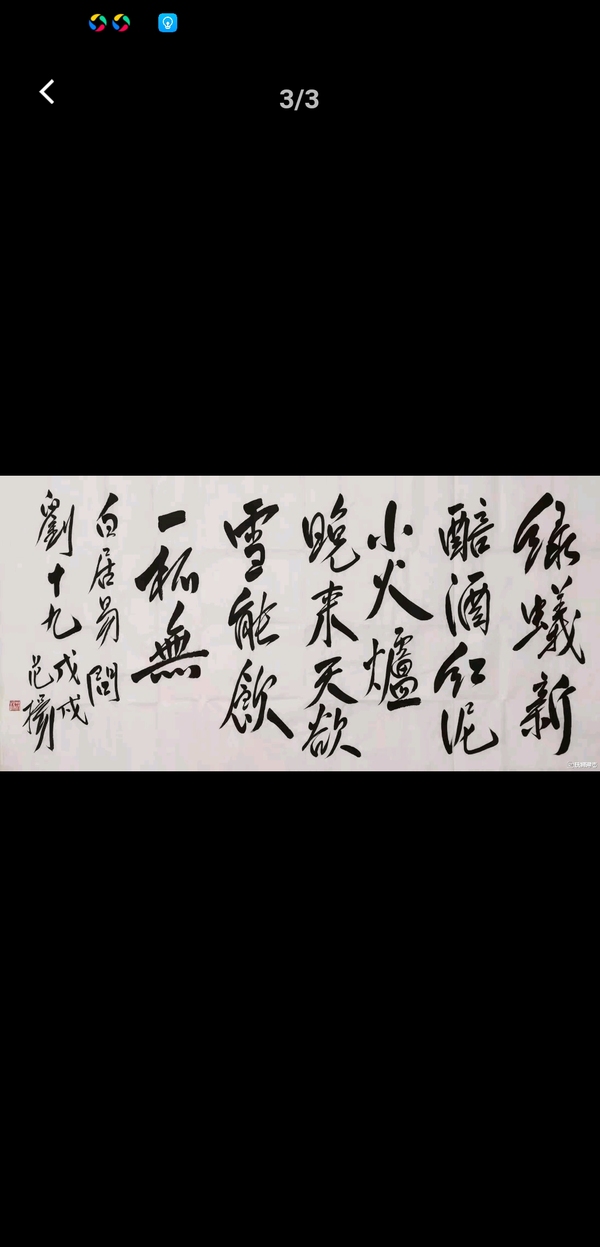 3/3
绿蟻新
醅酒红泥
小火爐
晚来天欲
雪能飲
一杯無
白居易問
劉十九戊戌
范揚